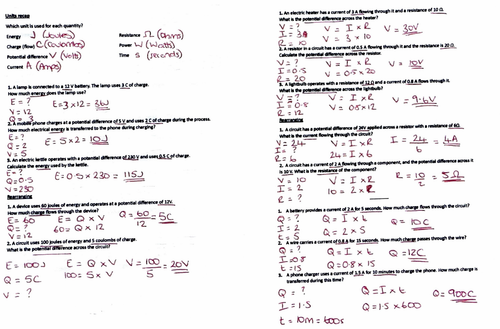 Units recap
Which unit is used for each quantity?
Energy J (Joules)
Charge (flow) C (Coulombs)
Potential difference V (Volts)
Current A (Amps)
Resistance Ω (Ohms)
Power W (Watts)
Time s (seconds)
1. A lamp is connected to a 12 V battery. The lamp uses 3 C of charge.
How much energy does the lamp use?
E = ?
V = 12
Q = 3
E = 3 × 12 = 36J
2. A mobile phone charges at a potential difference of 5 V and uses 2 C of charge during the process.
How much electrical energy is transferred to the phone during charging?
E = ?
Q = 2
V = 5
E = 5 × 2 = 10J
3. An electric kettle operates with a potential difference of 230 V and uses 0.5 C of charge.
Calculate the energy used by the kettle.
E = ?
Q = 0.5
V = 230
E = 0.5 × 230 = 115J
Rearranging
1. A device uses 60 joules of energy and operates at a potential difference of 12V.
How much charge flows through the device?
E = 60
Q = ?
V = 12
E = Q × V
60 = Q × 12
Q = 60/12 = 5C
2. A circuit uses 100 joules of energy and 5 coulombs of charge.
What is the potential difference across the circuit?
E = 100J
Q = 5C
V = ?
E = Q × V
100 = 5 × V
V = 100/5 = 20V
1. An electric heater has a current of 3 A flowing through it and a resistance of 10 Ω.
What is the potential difference across the heater?
V = ?
I = 3A
R = 10
V = I × R
V = 3 × 10
V = 30V
2. A resistor in a circuit has a current of 0.5 A flowing through it and the resistance is 20 Ω.
Calculate the potential difference across the resistor.
V = ?
I = 0.5
R = 20
V = I × R
V = 0.5 × 20
V = 10V
3. A lightbulb operates with a resistance of 12 Ω and a current of 0.8 A flows through it.
What is the potential difference across the lightbulb?
V = ?
I = 0.8
R = 12
V = I × R
V = 0.8 × 12
V = 9.6V
Rearranging
1. A circuit has a potential difference of 24V applied across a resistor with a resistance of 6Ω.
What is the current flowing through the circuit?
V = 24
I = ?
R = 6
V = I × R
24 = I × 6
I = 24/6 = 4A
2. A circuit has a current of 2 A flowing through a component, and the potential difference across it
is 10 V. What is the resistance of the component?
V = 10
I = 2
R = ?
V = I × R
10 = 2 × R
R = 10/2 = 5Ω
1. A battery provides a current of 2 A for 5 seconds. How much charge flows through the circuit?
Q = ?
I = 2
t = 5
Q = I × t
Q = 2 × 5
Q = 10C
2. A wire carries a current of 0.8 A for 15 seconds. How much charge passes through the wire?
Q = ?
I = 0.8
t = 15
Q = I × t
Q = 0.8 × 15
Q = 12C
3. A phone charger uses a current of 1.5 A for 10 minutes to charge the phone. How much charge is
transferred during this time?
Q = ?
I = 1.5
t = 10m = 600s
Q = I × t
Q = 1.5 × 600
Q = 900C